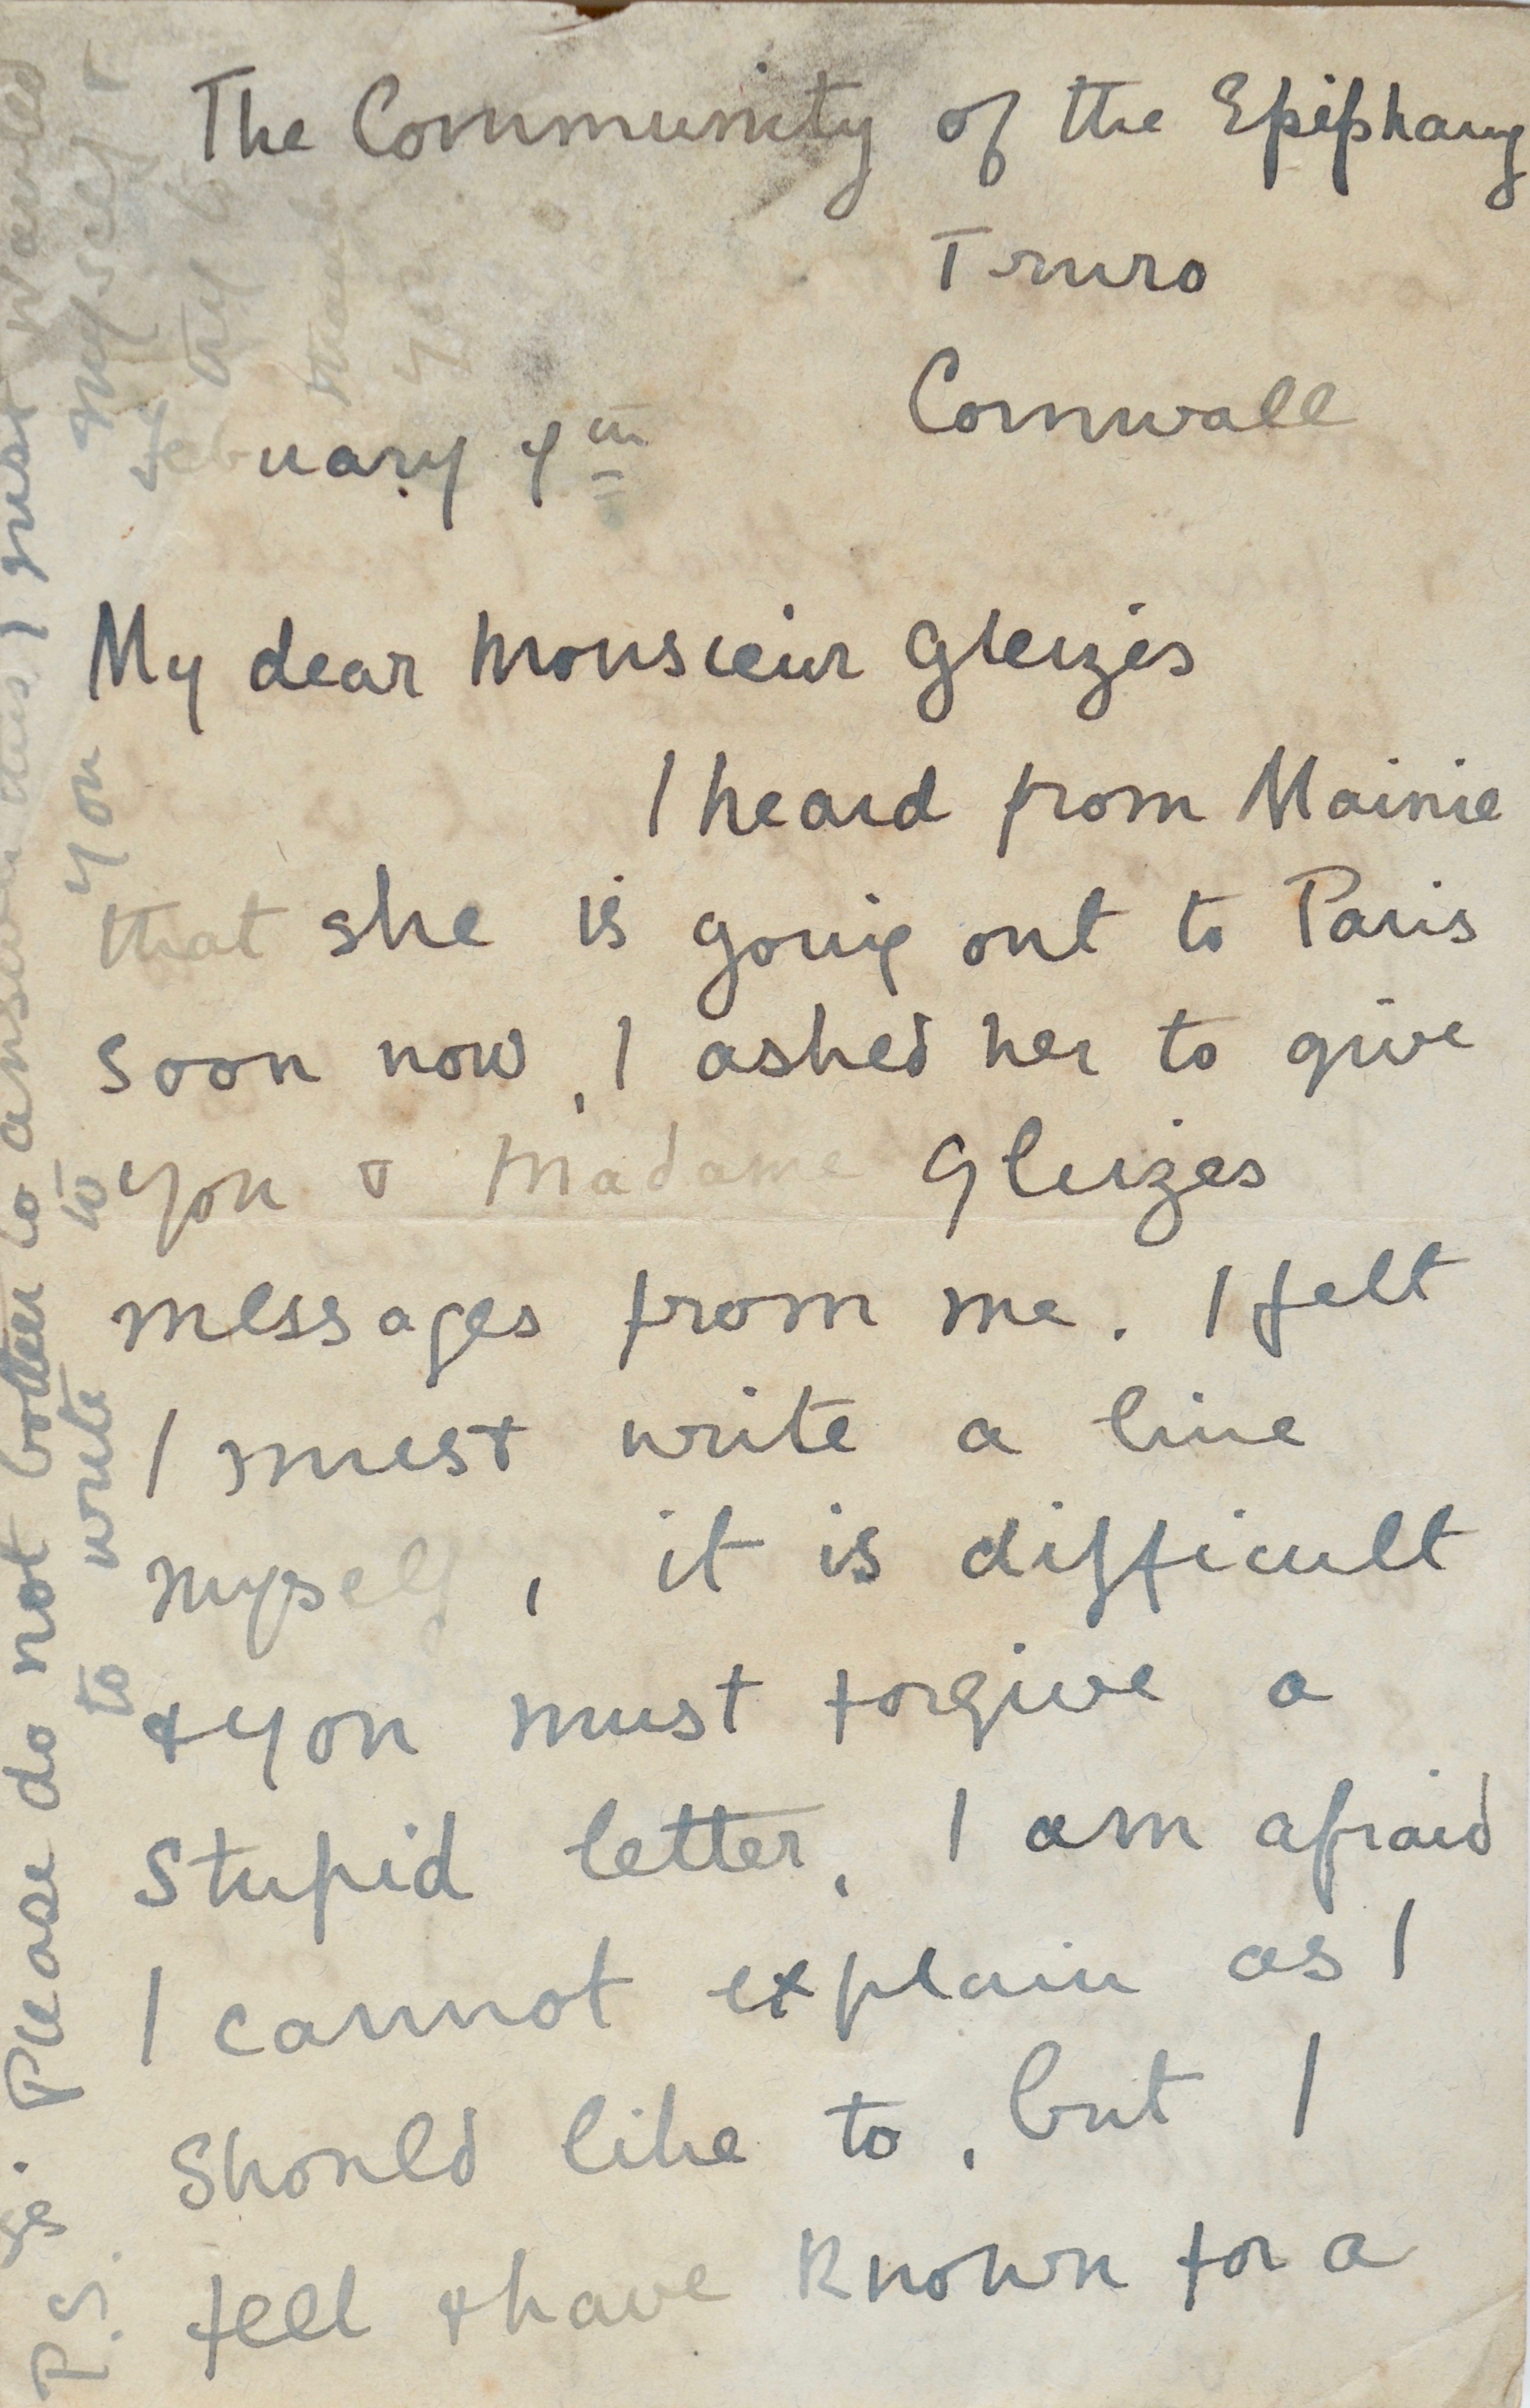 The Community of the Epiphany
Truro
Cornwall
February 4th
My dear Monsieur Gleizes
I heard from Mainie
that she is going out to Paris
soon now, I asked her to give
you & Madame Gleizes
messages from me. I felt
I must write a line
myself, it is difficult
& you must forgive a
stupid letter, I am afraid
I cannot explain as I
should like to, but I
feel & have known for a
P.S. Please do not bother to answer this, I just wanted
to write to you myself &
try to
thank
you